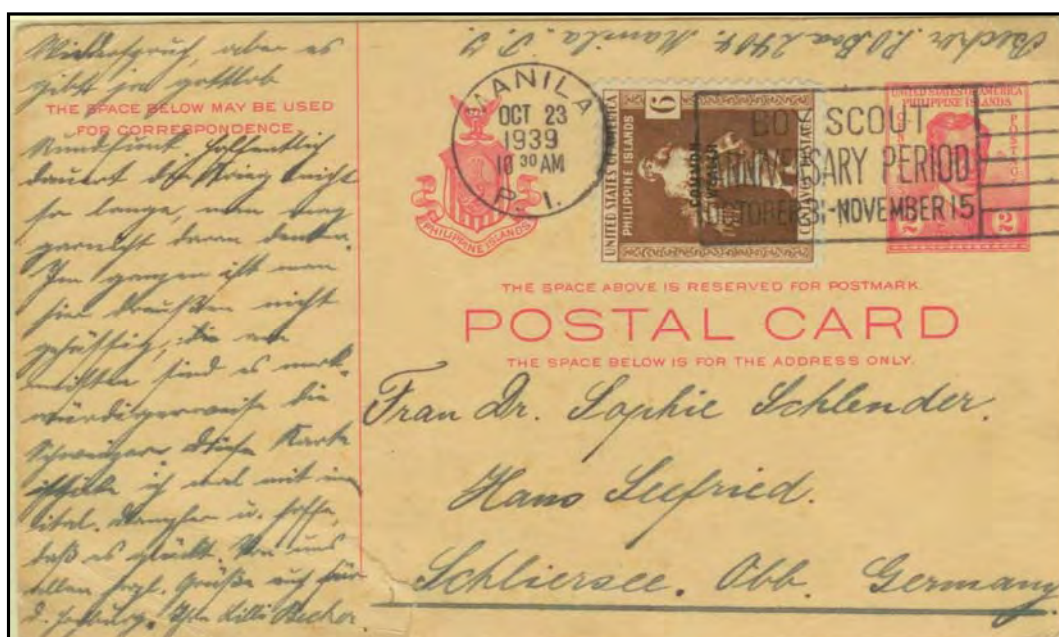 Widerspruch, aber es
gibt ja gottlob
THE SPACE BELOW MAY BE USED
FOR CORRESPONDENCE.
Rundfunk. Hoffentlich
dauert der Krieg nicht
so lange, man mag
garnicht daran denken.
Im ganzen ist man
hier draußen nicht
gehässig, die am
meisten sind es merk-
würdigerweise die
Schweizer. Diese Karte
schicke ich mal mit
ital. Dampfer u. hoffe,
daß es glückt. Von uns
allen herzl. Grüße auch für
Ihre Lilli Becher.
Becher. P.O. Box 2404. Manila. P. I.
MANILA
OCT 23
1939
10 30 AM
P. I.
PHILIPPINE ISLANDS
UNITED STATES OF AMERICA
PHILIPPINE ISLANDS
6
CENTAVOS POSTAGE
COMMON
WEALTH
BOY SCOUT
ANNIVERSARY PERIOD
OCTOBER 31-NOVEMBER 15
UNITED STATES OF AMERICA
PHILIPPINE ISLANDS
2 2
THE SPACE ABOVE IS RESERVED FOR POSTMARK.
POSTAL CARD
THE SPACE BELOW IS FOR THE ADDRESS ONLY.
Frau Dr. Sophie Schlender.
Haus Seefried.
Schliersee. Obb. Germany